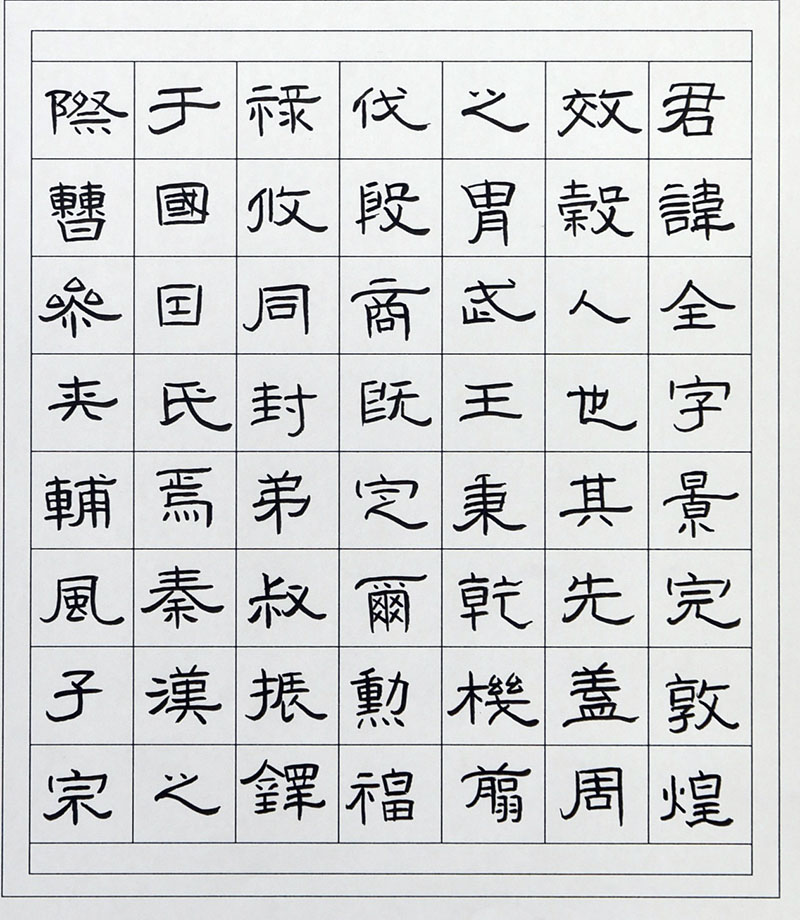 君諱全字景完敦煌
效穀人也其先盖周
之胄武王秉乾機翦
伐殷商既定爾勳福
祿攸同封弟叔振鐸
于國囙氏焉秦漢之
際曹參夾輔風子宗